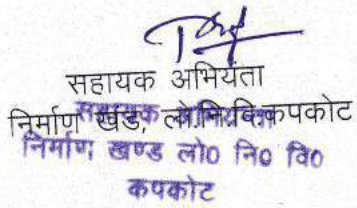 सहायक अभियंता
निर्माण खंड, लो.नि.वि.कपकोट
सहायक अभियन्ता
निर्माण खण्ड लो० नि० वि०
कपकोट